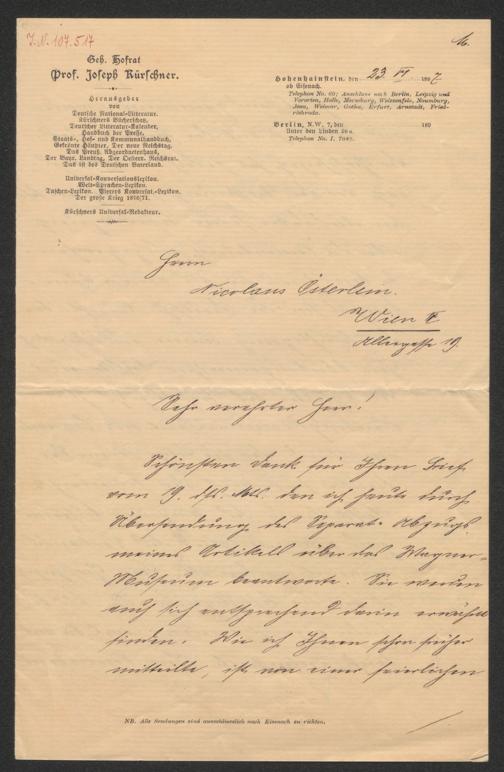 J.N. 107.517
16.
Geh. Hofrat
Prof. Joseph Kürschner.
Herausgeber
von
Deutsche National-Litteratur.
Kürschners Bücherschatz.
Deutscher Litteratur-Kalender.
Handbuch der Presse.
Staats-, Hof- und Kommunalhandbuch.
Gekrönte Häupter. Der neue Reichstag.
Das Preuß. Abgeordnetenhaus.
Der Bayr. Landtag. Der Oesterr. Reichsrat.
Das ist des Deutschen Vaterland.
Universal-Konversationslexikon.
Welt-Sprachen-Lexikon.
Taschen-Lexikon. Pierers Konversat.-Lexikon.
Der große Krieg 1870/71.
Kürschners Universal-Redakteur.
Hohenhainstein, den 23. VI 1897.
ob Eisenach.
Telephon No. 60; Anschluss nach Berlin, Leipzig und
Vororten, Halle, Merseburg, Weissenfels, Naumburg,
Jena, Weimar, Gotha, Erfurt, Arnstadt, Fried-
richroda.
Berlin, N.W., 7, den 189
Unter den Linden
Telephon No. I.
Herrn
Nicolaus Österlein.
Wien
Alleegasse 19.
Sehr verehrter Herr!
Schönsten Dank für Ihren Brief
vom 19. ds. Mts. den ich heute durch
Übersendung des Separat-Abzugs
meines Artikels über das Wagner-
Museum beantworte. Sie werden
auch sich entsprechend darin erwähnt
finden. Wie ich Ihnen schon früher
mitteilte, ist von einer feierlichen
NB. Alle Sendungen sind ausschliesslich nach Eisenach zu richten.